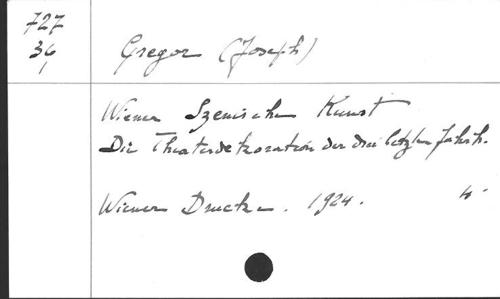 727
36
1
Gregor (Joseph)
Wiener Szenische Kunst
Die Theaterdekoration der drei letzten Jahrh.
Wiener Drucke. 1924. 4°